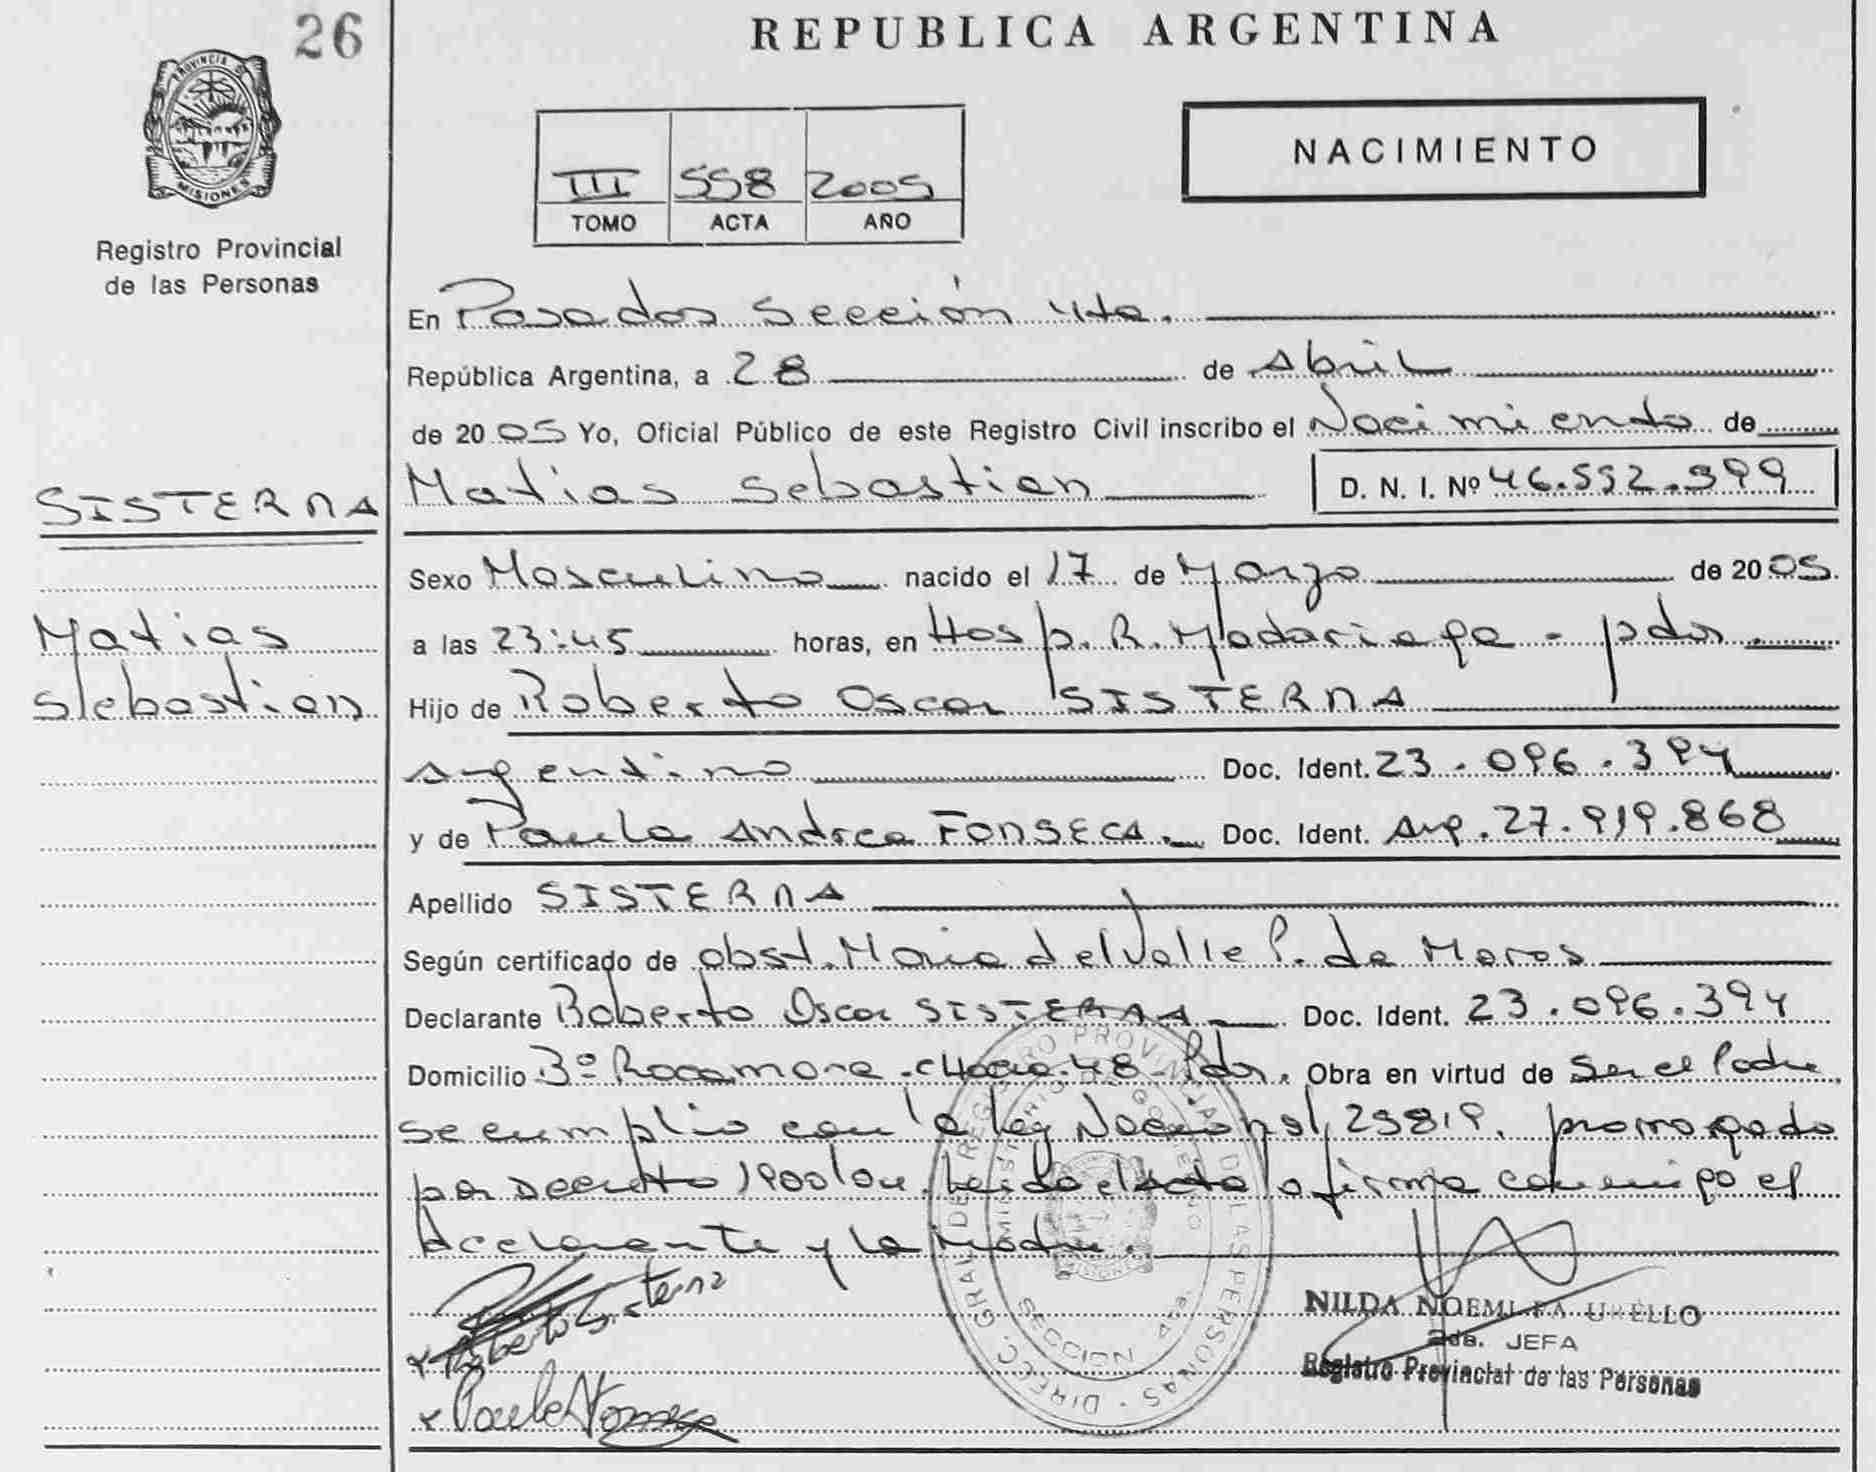 26
REPUBLICA ARGENTINA
PROVINCIA DE
MISIONES
Registro Provincial
de las Personas
III 558 2005
TOMO ACTA AÑO
NACIMIENTO
En Posadas Sección 4ta.
República Argentina, a 28 de Abril
de 2005 Yo, Oficial Público de este Registro Civil inscribo el Nacimiento de
SISTERNA
Matias Sebastian D. N. I. Nº 46.552.399
Sexo Masculino nacido el 17 de Marzo de 2005
Matias
Sebastian
a las 23:45 horas, en Hosp. R. Madariaga - pdas.
Hijo de Roberto Oscar SISTERNA
Argentino Doc. Ident. 23.096.394
y de Paula Andrea FONSECA. Doc. Ident. Arg. 27.919.868
Apellido SISTERNA
Según certificado de obst. Maria del Valle P. de Moros
Declarante Roberto Oscar SISTERNA Doc. Ident. 23.096.394
Domicilio Bº Rocamora. 48 Pdas. Obra en virtud de Ser el Padre
se cumplio con la ley Nacional 25819. prorrogado
por Decreto 1900/04. Leida el Acta la firma conmigo el
declarante y la Madre.
Roberto Sisterna
Paula Fonseca
DIREC. GRAL. DEL REGISTRO PROVINCIAL DE LAS PERSONAS
MINISTERIO DE GOBIERNO
MISIONES
SECCION 4ta.
NILDA NOEMI
2da. JEFA
Registro Provincial de las Personas